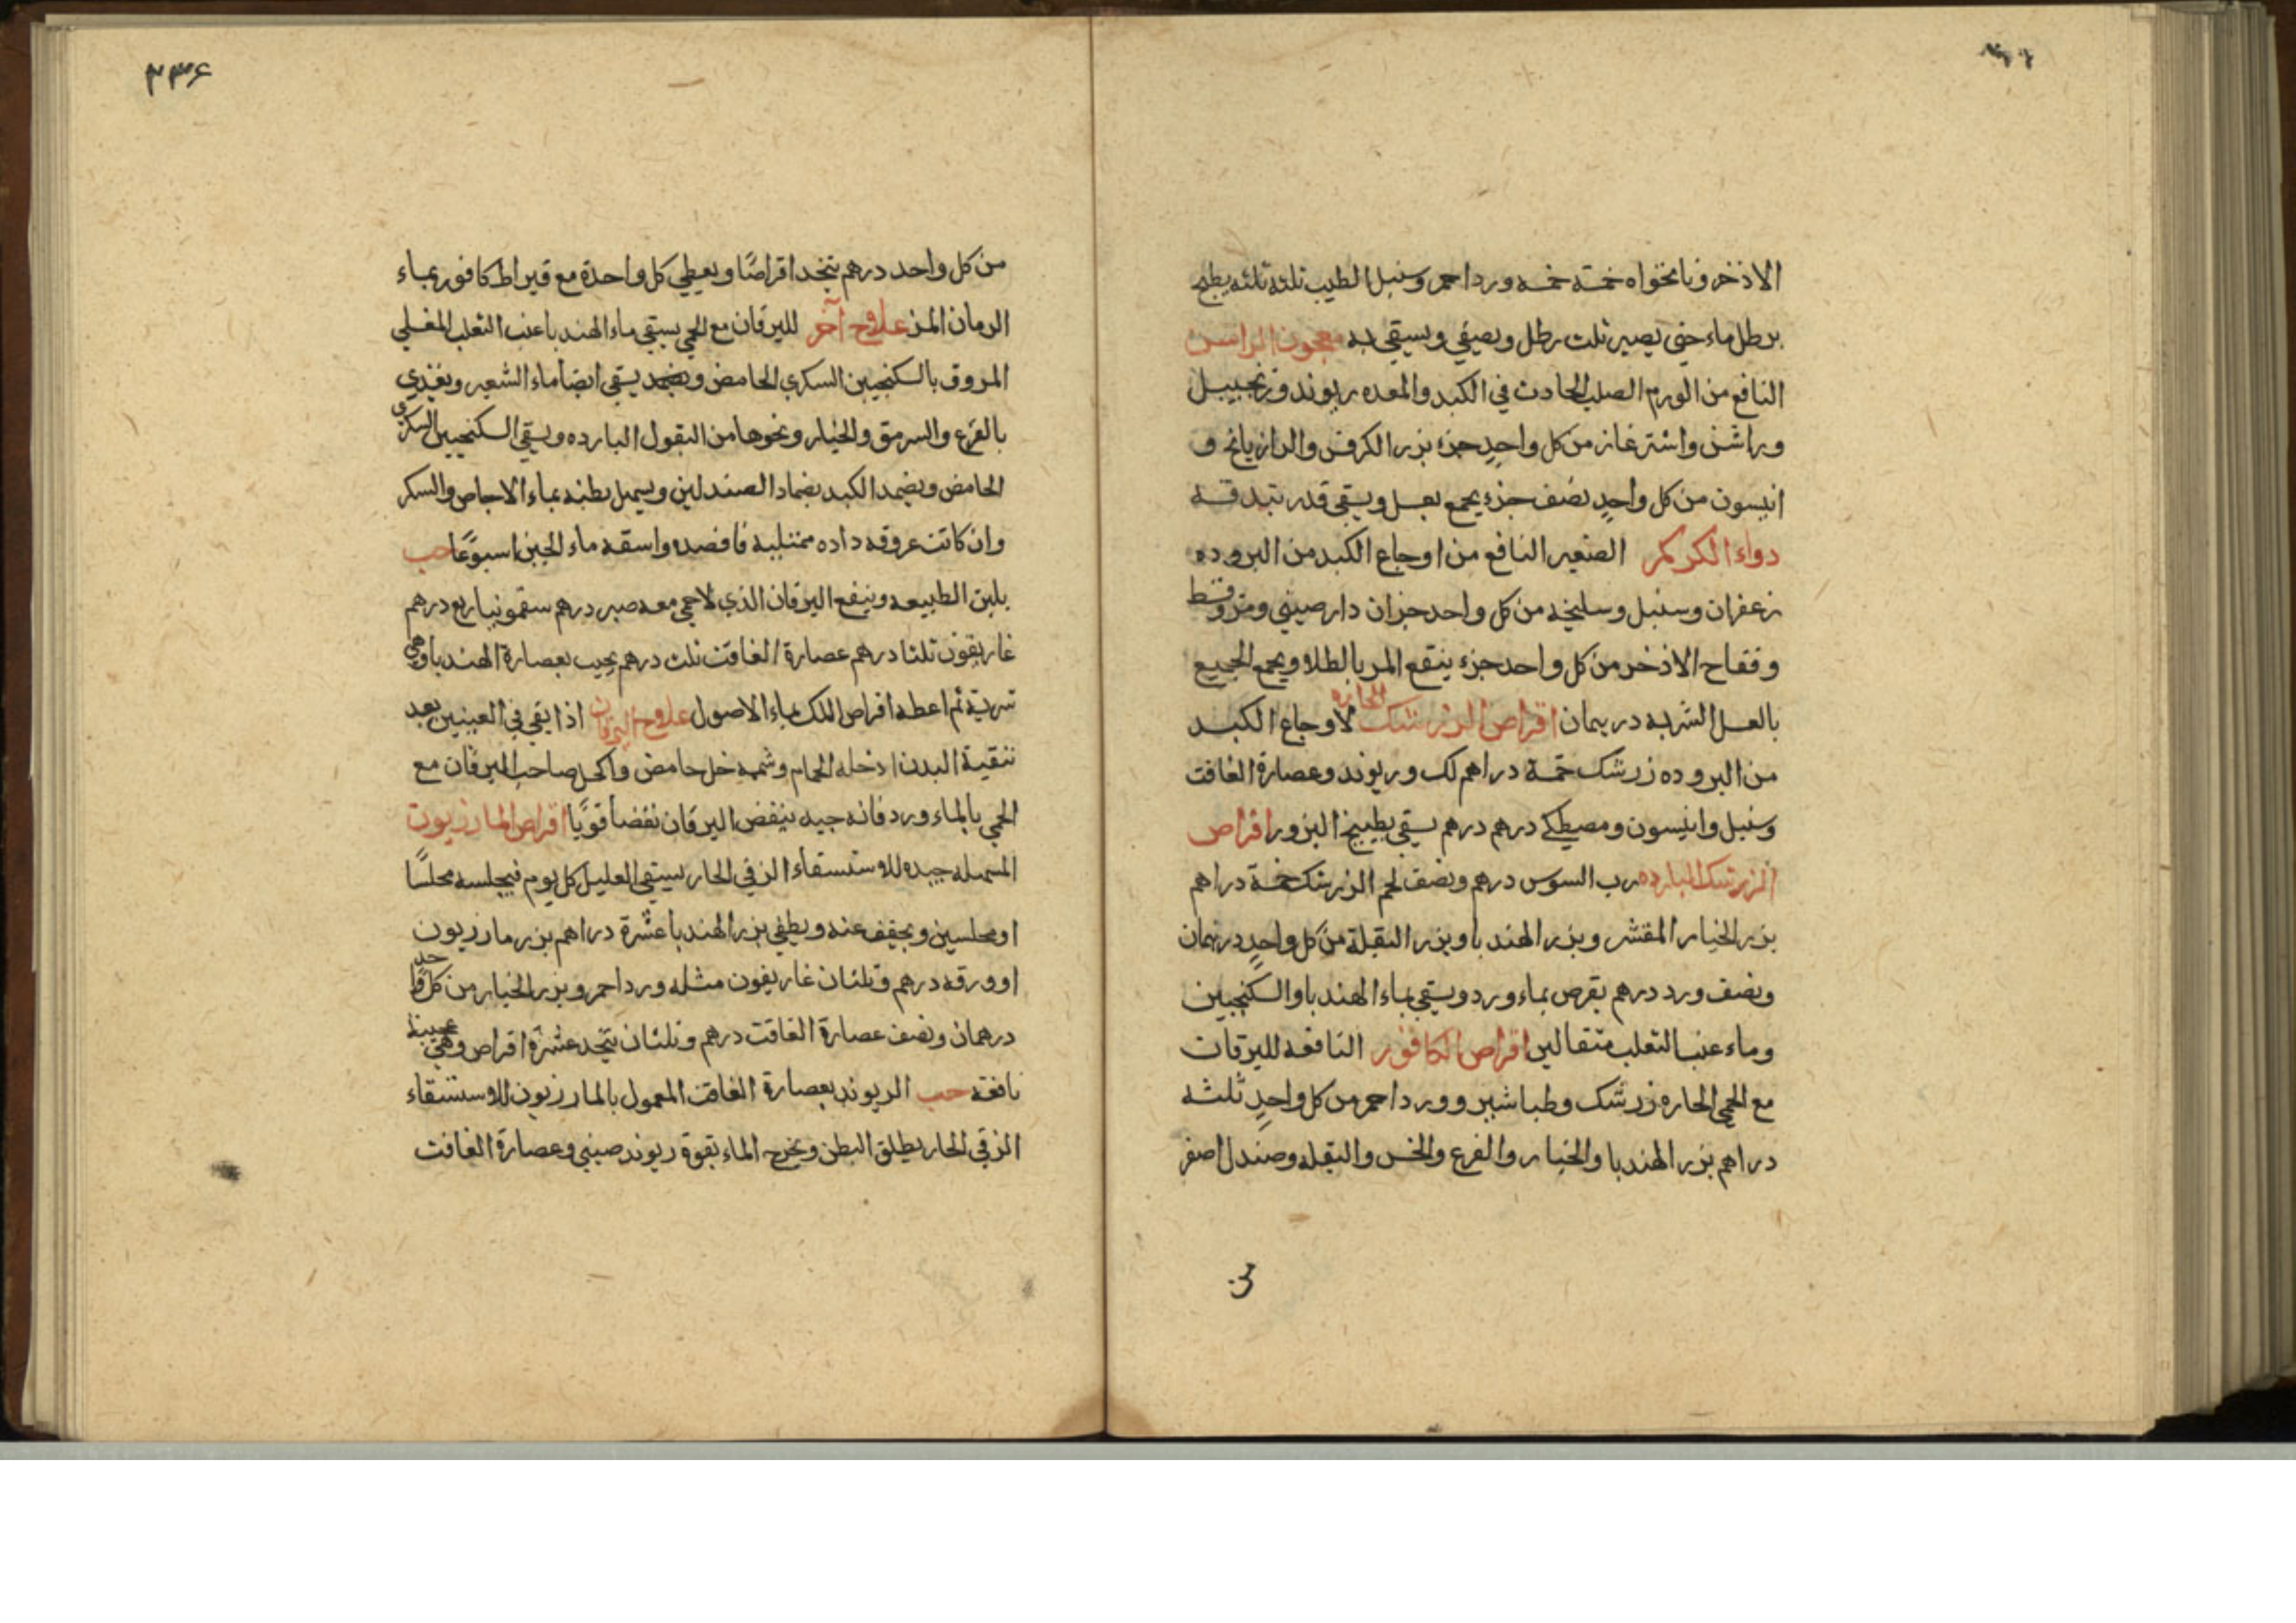 الاذخر ونانخواه خمسة خمسه ورد احمر وسنبل الطيب ثلثه ثلثه يطبخ
برطل ماء حتى يصير ثلث رطل ويصفي ويسقي به معجون الراسن
النافع من الورم الصلب الحادث في الكبد والمعده ريوند وزنجبيل
وراشن واشترغاز من كل واحد جزء بزر الكرفس والرازيانج و
انيسون من كل واحد نصف جزء يجمع بعسل ويسقي قدر بندقة
دواء الكركم الصغير النافع من اوجاع الكبد من البروده
زعفران وسنبل وسليخه من كل واحد جزان دارصيني ومر وقسط
وفقاح الاذخر من كل واحد جزء ينقع المر بالطلا ويجمع الجميع
بالعسل الشربه درهمان اقراص الزرشك الحاره لاوجاع الكبد
من البروده زرشك خمسة دراهم لك وريوند وعصارة الغافت
وسنبل وانيسون ومصطكي درهم درهم يسقي بطبيخ البزور اقراص
الزرشك البارده رب السوس درهم ونصف لحم الزرشك خمسة دراهم
بزر الخيار المقشر وبزر الهندبا وبزر البقلة من كل واحد درهمان
ونصف ورد درهم يقرص بماء ورد ويسقي بماء الهندبا والسكنجبين
وماء عنب الثعلب مثقالين اقراص الكافور النافعه لليرقان
مع الحمي الحاره زرشك وطباشير وورد احمر من كل واحد ثلثه
دراهم بزر الهندبا والخيار والقرع والخس والبقله وصندل اصفر
من
۲۳۶
من كل واحد درهم يتخد اقراصًا ويعطي كل واحدة مع قيراط كافور بماء
الرمان المز علاج آخر لليرقان مع الحمي يسقي ماء الهندبا عنب الثعلب المغلي
المروق بالسكنجبين السكري الحامض يسقي ايضا ماء الشعير ويغذي
بالقرع والسرمق والخيار ونحوها من البقول البارده ويسقي السكنجبين السكري
الحامض ويضمد الكبد بضماد الصندلين ويسهل بطنه بماء الاجاص والسكر
وان كانت عروقه داره ممتليه فافصده واسقه ماء الجبن اسبوعًا حب
يلين الطبيعه وينفع اليرقان الذي لا حمي معه صبر درهم سقمونيا ربع درهم
غاريقون ثلثا درهم عصارة الغافت ثلث درهم يحبب بعصارة الهندبا وهي
شربة ثم اعطه اقراص اللك بماء الاصول علاج اليرقان اذا بقي في العينين بعد
تنقية البدن ادخله الحمام وشممه خل حامض واكحل صاحب اليرقان مع
الحمي بالماء ورد فانه جيد ينفض اليرقان نفضا قويًا اقراص المازريون
المسهله جيده للاستسقاء الزقي الحار يسقي العليل كل يوم فيجلسه مجلسًا
او مجلسين ويجفف عنه ويطفي بزر الهندبا عشرة دراهم بزر مازريون
او ورقه درهم وثلثان غاريقون مثله ورد احمر وبزر الخيار من كل واحد
درهمان ونصف عصارة الغافت درهم وثلثان يتخد عشرة اقراص وهي عجيبة
نافعة حب الريوند بعصارة الغافت المعمول بالمازريون للاستسقاء
الزقي الحار يطلق البطن ويخرج الماء بقوة ريوند صيني وعصارة الغافت